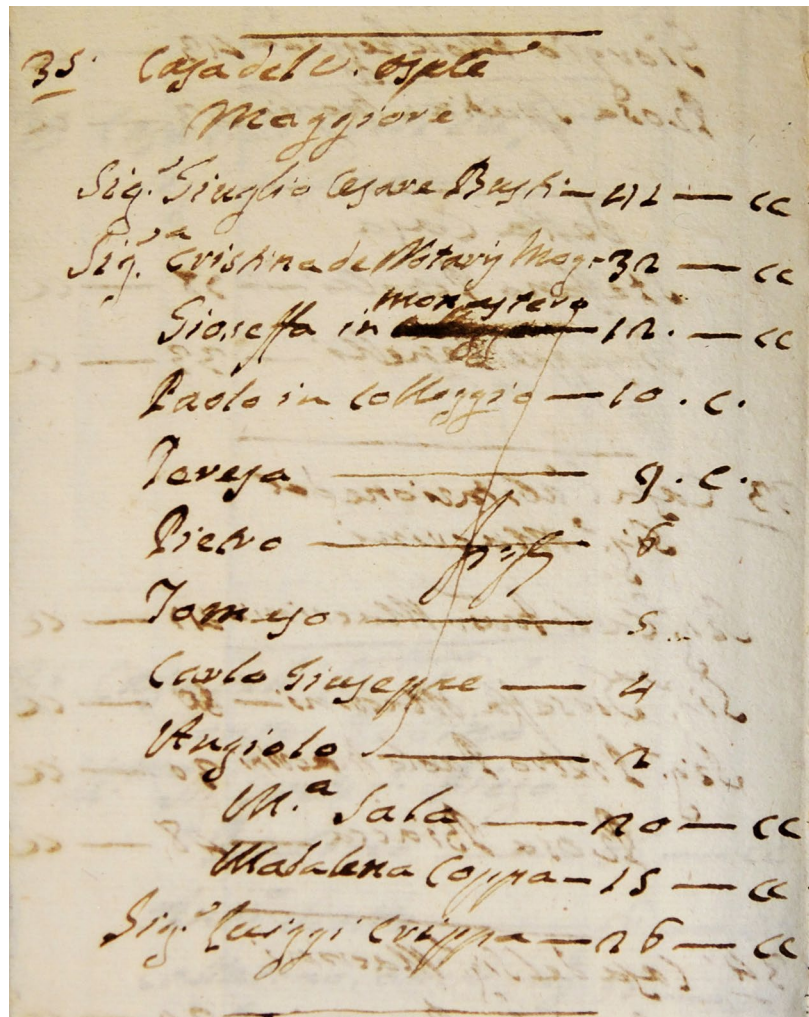 35. Casa del V. Osple
Maggiore
Sig.r Giuglio Cesare Busti — 42 — cc
Sig.ra Cristina de Notarij Mog. 32 — cc
monastero
Gioseffa in — 12. — cc
Paolo in Colleggio — 10 . c.
Teresa — 9 . c .
Pietro — 6
figli
Tomaso — 5
Carlo Giuseppe — 4
Angiolo — 2
M.a Sala — 20 — cc
Madalena Coppa — 15 — cc
Sig.r Luiggi Crippa — 26 — cc